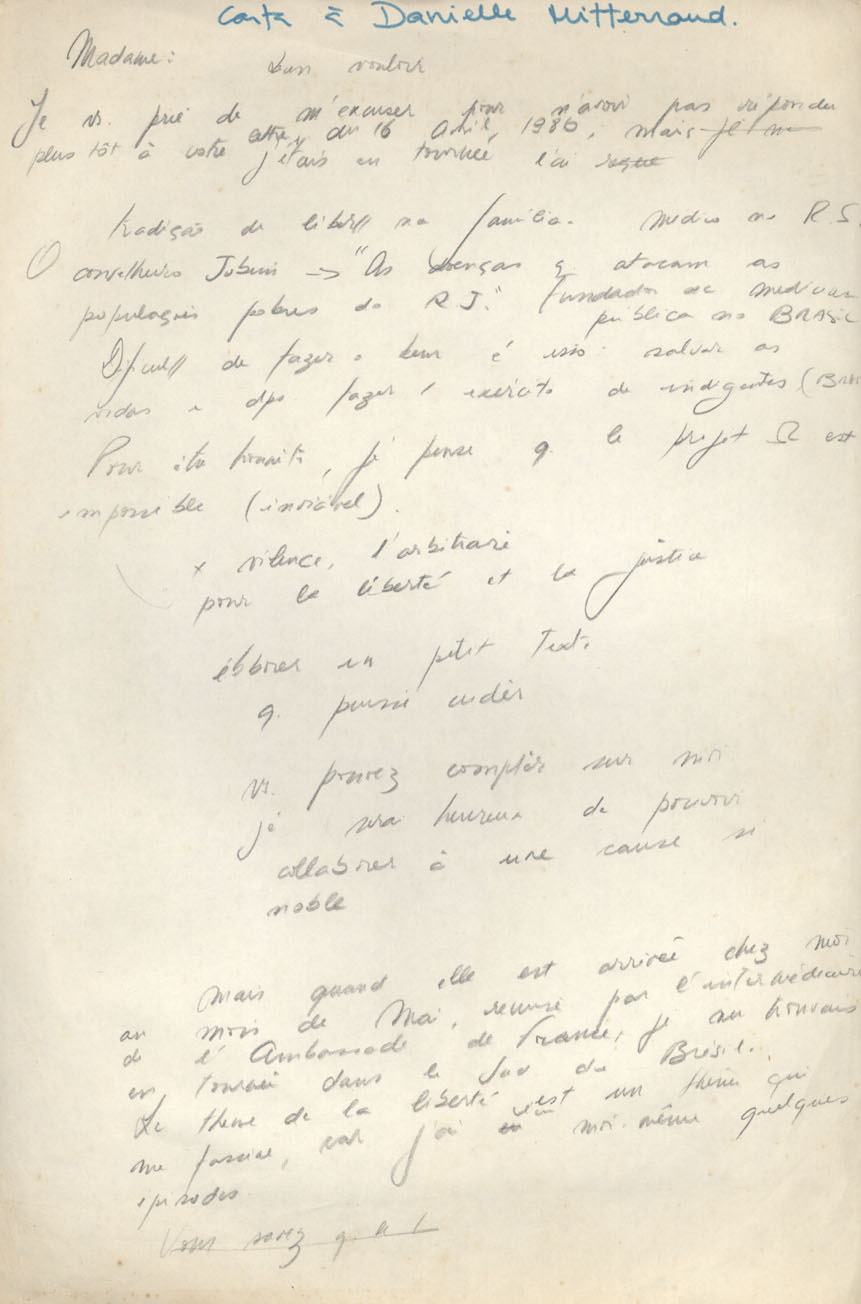 Carta à Danielle Mitterrand.
Madame: bien vouloir
Je vs. prie de m'excuser pour n'avoir pas répondu
plus tôt à votre lettre, du 16 Avril, 1986, mais je
j'étais en tournée l'ai
tradição de liber// na família. Médico no R.S.
O conselheiro Jobim -> "As doenças q atacam as
populações pobres do R.J." Fundador da medicina
pública no BRASIL
Dificul// de fazer o bem é isso: salvar as
vidas e dps fazer 1 exército de indigentes (
Pour être honnête, je pense q. le projet Ω est
impossible (inviável).
x vilence, l'arbitraire
pour la liberté et la justice
élborer un petit texte
q. puisse
vs. pouvez compter sur moi
je serai heureux de pouvoir
collaborer à une cause si
noble
Mais quand elle est arrivée chez moi
au mois de Mai, remise par l'intermédiaire
de l'Ambassade de France, je me trouvais
en tournée dans le Sud du Brésil.
Le thème de la liberté est un thème qui
me fascine, car j'ai moi-même quelques
episodes
Vous savez q